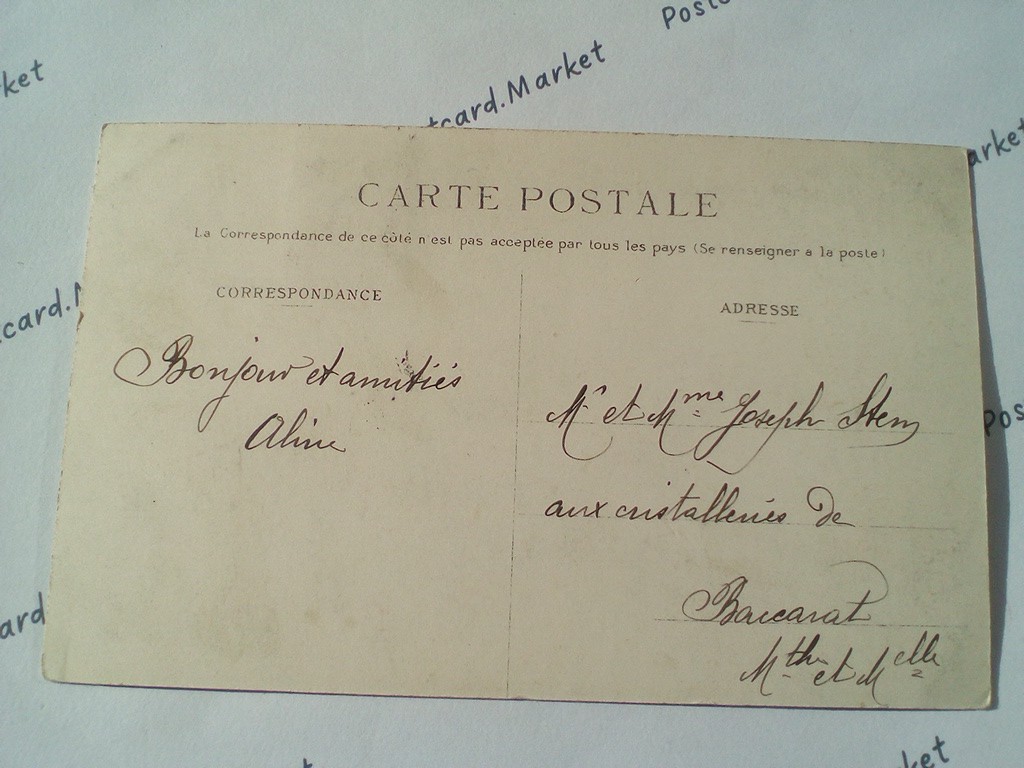 Postc
ket
tcard.Market
arket
CARTE POSTALE
La Correspondance de ce côté n'est pas acceptée par tous les pays (Se renseigner a la poste)
CORRESPONDANCE
ADRESSE
card.M
Bonjour et amitiés
Aline
Mr et Mme Joseph Stem
aux cristalleries de
Baccarat
Mthe et Melle
Pos
ard
ket